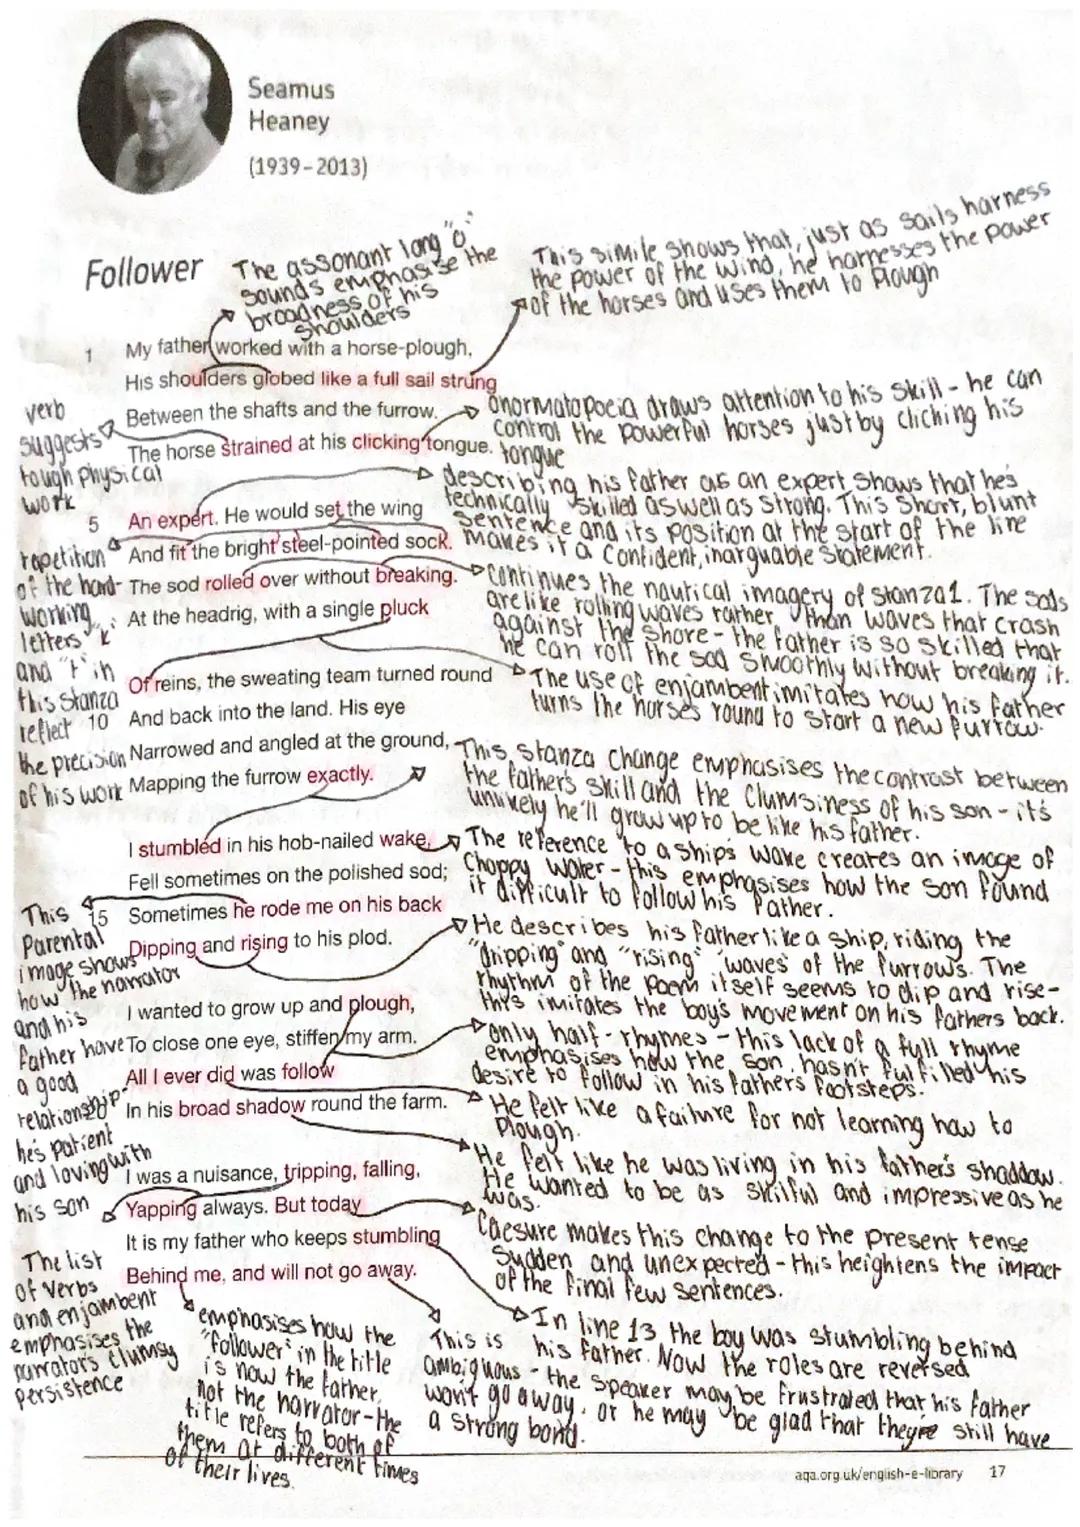 Seamus
Heaney
(1939-2013)
Follower
The assonant long "o"
sounds emphasise the
broadness of his
shoulders
This simile shows that, just as sails harness
the power of the wind, he harnesses the power
of the horses and uses them to plough
1 My father worked with a horse-plough,
His shoulders globed like a full sail strung
Between the shafts and the furrow.
The horse strained at his clicking tongue.
verb
suggests
tough physical
work
onormatopoeia draws attention to his skill - he can
control the powerful horses just by cliching his
tongue
describing his father as an expert shows that he's
technically skilled as well as strong. This short, blunt
sentence and its position at the start of the line
makes it a confident, inarguable statement.
5 An expert. He would set the wing
And fit the bright steel-pointed sock.
The sod rolled over without breaking.
At the headrig, with a single pluck
repetition
of the hard-
working
letters "k"
and "t" in
this stanza
reflect
the precision
of his work
continues the nautical imagery of stanza 1. The sods
are like rolling waves rather than waves that crash
against the shore - the father is so skilled that
he can roll the sod smoothly without breaking it.
Of reins, the sweating team turned round
10 And back into the land. His eye
Narrowed and angled at the ground,
Mapping the furrow exactly.
The use of enjambent imitates how his father
turns the horses round to start a new furrow.
This stanza change emphasises the contrast between
the father's skill and the clumsiness of his son - it's
unlikely he'll grow up to be like his father.
I stumbled in his hob-nailed wake,
Fell sometimes on the polished sod;
15 Sometimes he rode me on his back
Dipping and rising to his plod.
The reference to a ship's wake creates an image of
choppy water - this emphasises how the son found
it difficult to follow his father.
This
parental
image shows
how the narrator
and his
father have
a good
relationship-
he's patient
and loving with
his son
He describes his father like a ship, riding the
"dripping" and "rising" "waves" of the furrows. The
rhythm of the poem itself seems to dip and rise-
this imitates the boy's movement on his fathers back.
I wanted to grow up and plough,
To close one eye, stiffen my arm.
All I ever did was follow
20 In his broad shadow round the farm.
only half-rhymes - this lack of a full rhyme
emphasises how the son hasn't fulfilled his
desire to follow in his fathers footsteps.
He felt like a failure for not learning how to
plough.
He felt like he was living in his father's shaddow.
He wanted to be as skilful and impressive as he
was.
I was a nuisance, tripping, falling,
Yapping always. But today
It is my father who keeps stumbling
Behind me, and will not go away.
Caesure makes this change to the present tense
sudden and unexpected - this heightens the impact
of the final few sentences.
The list
of verbs
and enjambent
emphasises the
narrators clumsy
persistence
emphasises how the
"follower" in the title
is now the father,
not the narrator - the
title refers to both of
them at different times
of their lives.
This is
ambiguous - the speaker may be frustrated that his father
won't go away, or he may be glad that they're still have
a strong bond.
In line 13, the boy was stumbling behind
his father. Now the roles are reversed
aqa.org.uk/english-e-library 17